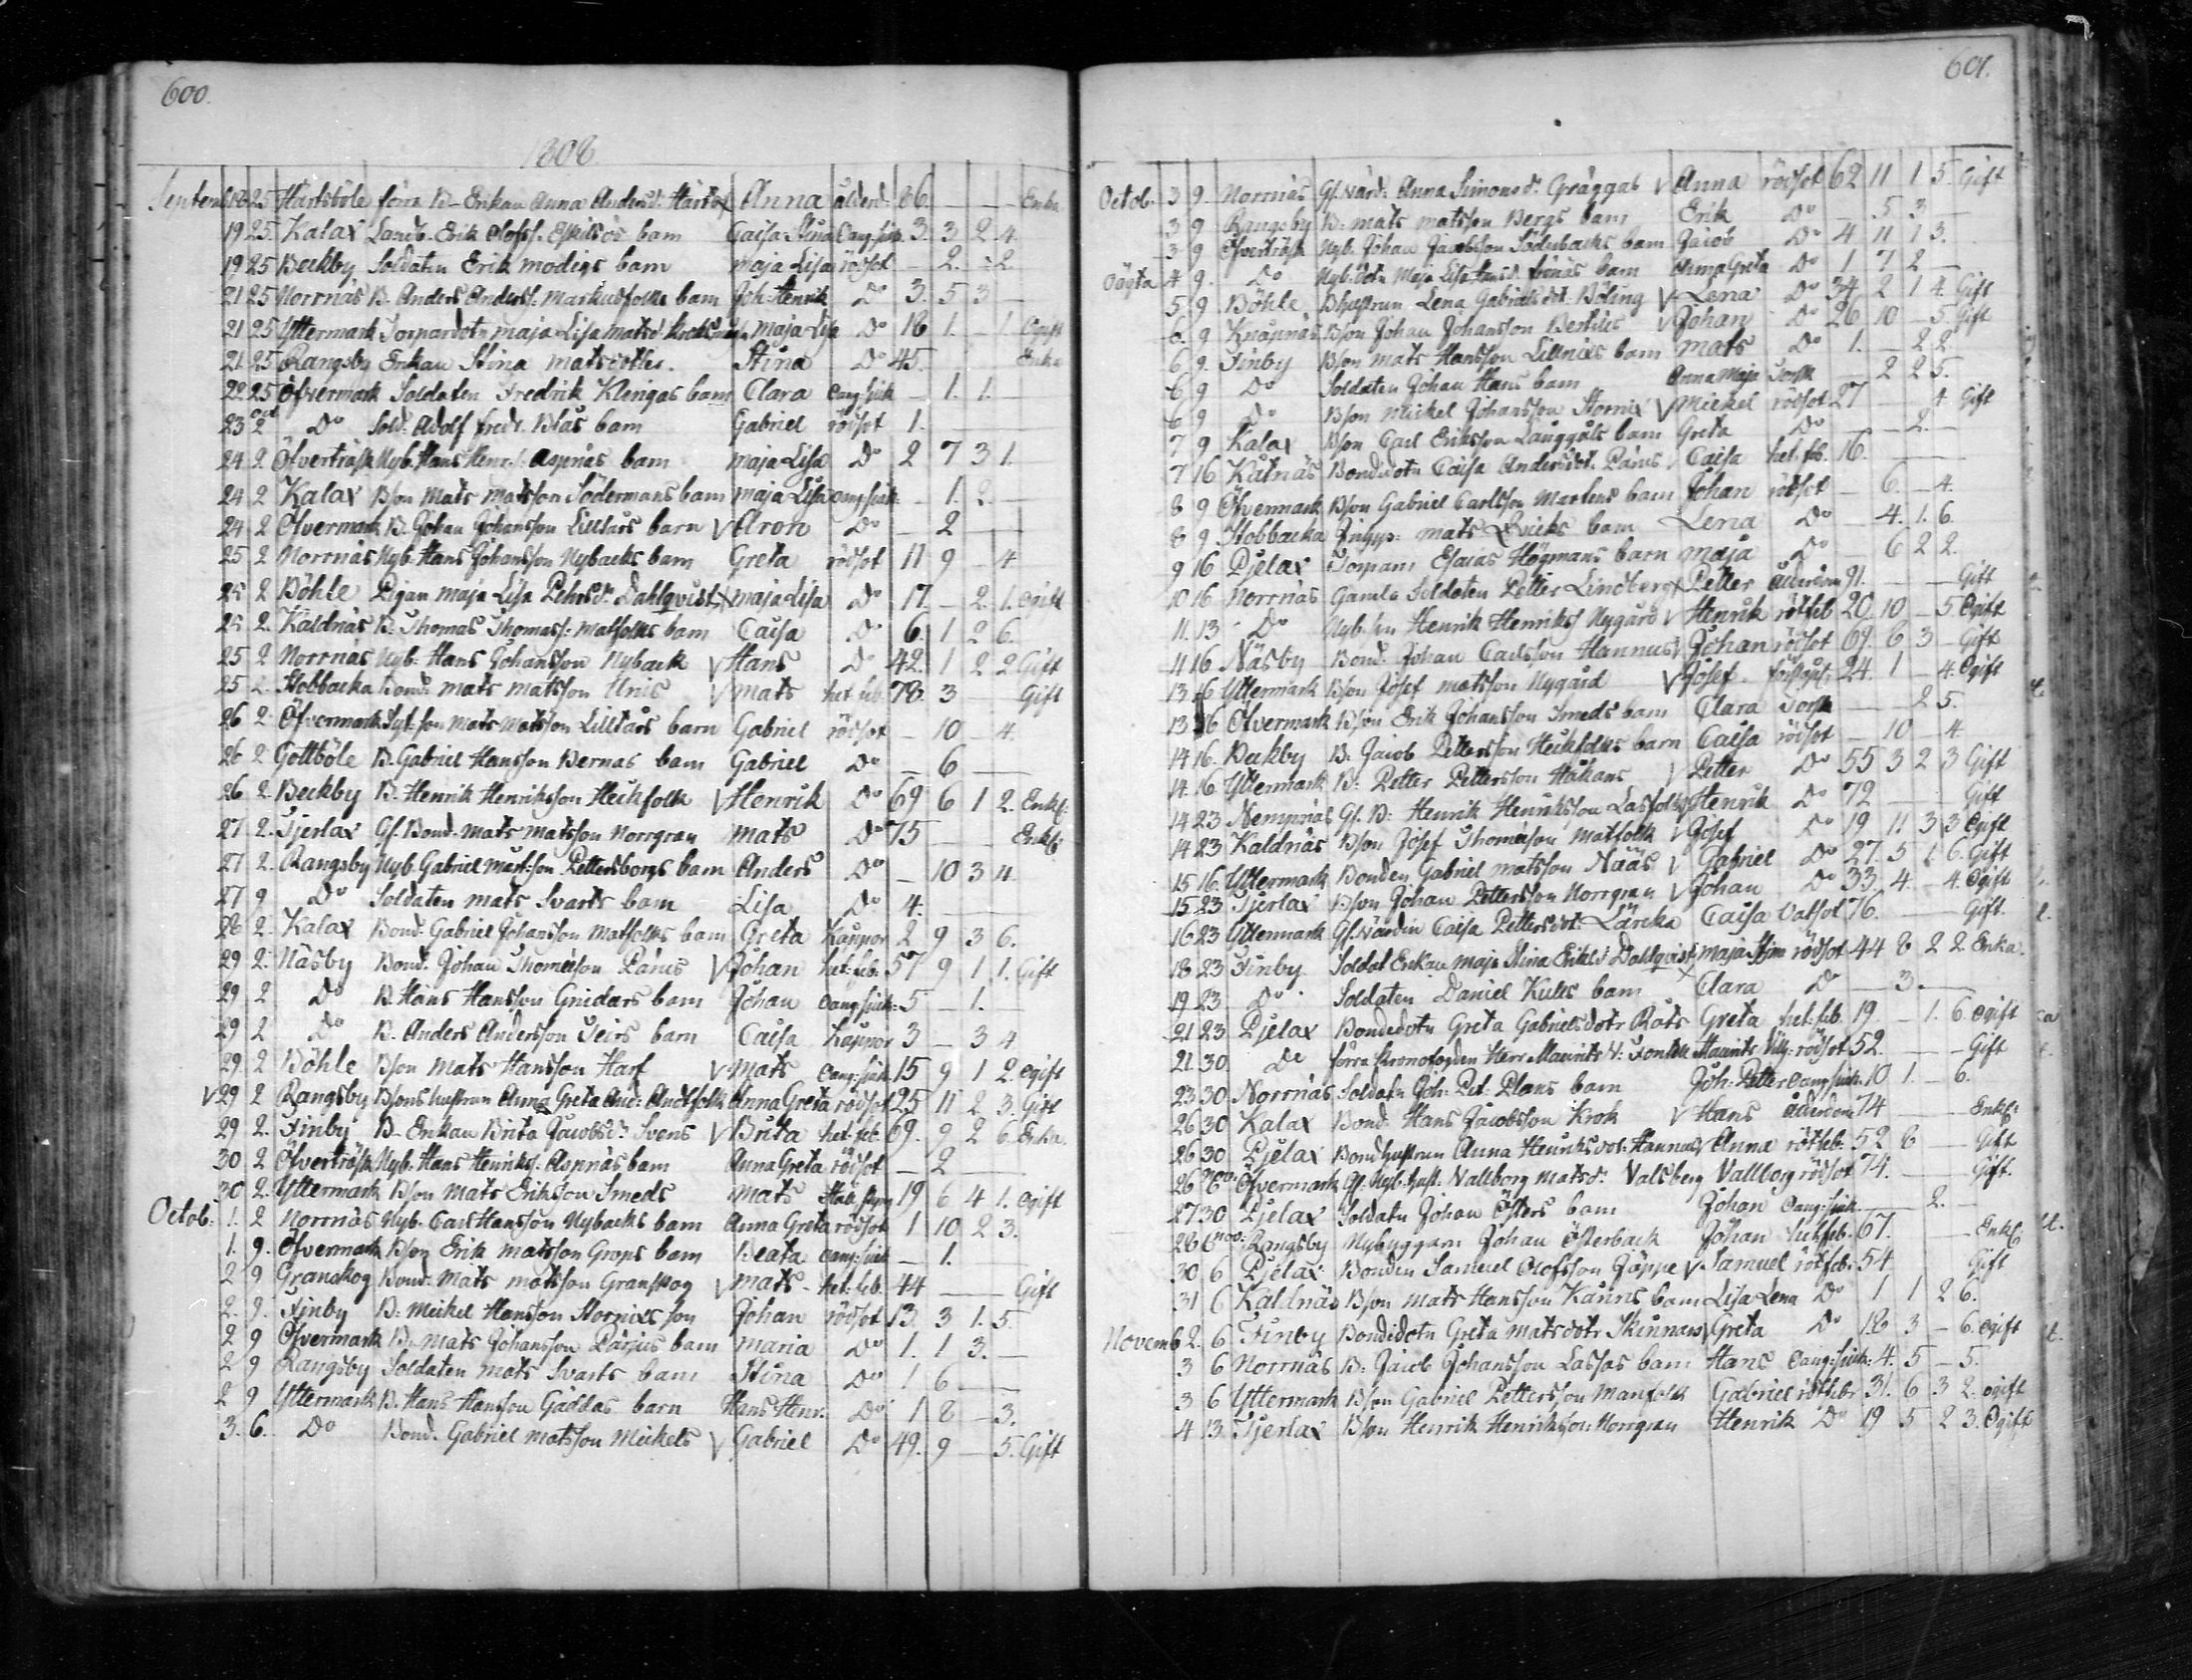 600.
1808
Septemb. 18 25 Hartsböle förra B. Enkan Anna Andersd: Anna ålderd: 86. — — Enka
19 25. Kalax Landb. Erik Olofss. barn Caisa Stina Cang:siuk. 3. 3 2. 4.
19 25 Beckby Soldaten Erik Modigs barn Maja Lisa rödsot — 2. — 2.
21 25 Norrnäs B. Anders Anderss: Markusfolks barn Joh: Henrik Do 3. 5 3 —
21 25 Yttermark Torpardotn Maja Lisa Matsd: Maja Lisa Do 18 1. — 1. Ogift
21 25 Rangsby Enkan Stina Matsdotter. Stina Do 45. Enka
22 25 Öfvermark Soldaten Fredrik Klengas barn Clara Cang:siuk — 1. 1. —
23 2 Do Sold. Adolf Fredr. Blås barn Gabriel rödsot 1. —
24 2. Öfverträsk Nyb. Hans Henr:s: Aspnäs barn Maja Lisa Do 2 7 3 1.
24 2 Kalax Bson Mats Matsson Södermans barn Maja Lisa Cang:siuk: — 1. 2. —
24 2 Öfvermark B. Johan Johansson Lilltårs barn V Aron Do — 2 —
25 2 Norrnäs Nyb. Hans Johansson Nybacks barn Greta rödsot 11 9 — 4
25 2 Böhle Pigan Maja Lisa Pehrsd: Dahlqvist Maja Lisa Do 17. — 2. 1. Ogift
25 2. Kaldnäs B. Thomas Thomass: Matfolks barn Caisa Do 6. 1 2 6.
25 2 Norrnäs Nyb. Hans Johansson Nyback V Hans Do 42. 1 2 2 Gift
25 2. Stobbacka Bond: Mats Matsson Unis V Mats het. feb. 78. 3 — Gift
26 2. Öfvermark Syt: son Mats Matsson Lilltårs barn Gabriel rödsot — 10 — 4.
26 2 Gottböle B. Gabriel Hansson Bernas barn Gabriel Do — 6 —
26 2. Beckby B. Henrik Henriksson Heikfolk V Henrik Do 69 6 1 2. Enkl:
27 2. Tjerlax Gf. Bond. Mats Matsson Norrgran Mats Do 75 — — Enkl:
27 2. Rangsby Nyb. Gabriel Mårt:son Pettersborgs barn Anders Do — 10 3 4
27 9 Do Soldaten Mats Svarts barn Lisa Do 4. —
28 2. Kalax Bond: Gabriel Johansson Matfolks barn Greta Kåppor 2 9 3 6.
29 2. Näsby Bond. Johan Thomasson Pärus V Johan het. feb. 57 9 1 1. Gift
29 2 Do B. Hans Hansson Gnidars barn Johan Cang:siuk: 5 — 1. —
29 2 Do B. Anders Andersson Teirs barn Caisa Kåppor 3 — 3 4
29. 2 Böhle Bson Mats Hansson Harf V Mats Cang:siuk 15 9 1 2. Ogift
V 29 2 Rangsby Bsons hustrun Anna Greta And: Andtfolk Anna Greta rödsot 25 11 2 3. Gift
29 2. Finby B. Enkan Brita Jacobsd: Svens V Brita het. feb. 69. 9 2 6. Enka
30 2 Öfverträsk Nyb. Hans Henriks: Aspnäs barn Anna Greta rödsot — 2
30 2. Yttermark Bson Mats Eriksson Smeds Mats 19 6 4 1. Ogift
Octob: 1. 2 Norrnäs Nyb. Carl Hansson Nybacks barn Anna Greta rödsot 1 10 2 3.
1. 9. Öfvermark Bson Erik Matsson Grops barn Beata Cang:siuk — 1.
2 9 Granskog Bond: Mats Matsson Granskog V Mats het: feb. 44 — Gift
2. 9. Finby B: Meikel Hansson Stornixs son Johan rödsot 13. 3 1. 5.
2 9 Öfvermark B. Mats Johansson Pärjus barn Maria Do 1. 1 3. —
2 9 Rangsby Soldaten Mats Svarts barn Stina Do 1 6 —
2 9 Yttermark B. Hans Hansson Gäddas barn Hans Henr. Do 1 8 — 3.
3. 6. Do Bond. Gabriel Matsson Meikels V Gabriel Do 49. 9 — 5. Gift
601.
Octob. 3 9. Norrnäs Gf. värd: Anna Simonsd: Gräggas V Anna rödsot 62 11 1 5. Gift
3 9 Rangsby B. Mats Matsson Bergs barn Erik Do — 5 3 —
3 9 Öfverträsk Nyb. Johan Jacobsson Söderbacks barn Jacob Do 4 11 1 3.
Oägta 4 9. Do Nyb. dotn Maja Lisa barn Anna Greta Do 1 7 2 —
5. 9 Böhle Bhustrun Lena Gabrielsdot: Böling V Lena Do 34 2 1 4. Gift
6. 9 Knapnäs Bson Johan Johansson Bertils V Johan Do 26 10 — 5 Gift
6 9. Finby Bson Mats Hansson Lillnixs barn Mats Do 1. — 2 2
6 9 Do Soldaten Johan Hans barn Anna Maja Torsk — 2 2 5.
6 9 Do Bson Mickel Johansson Stornix V Mickel rödsot 27 — 4 Gift
7 9 Kalax Bson Carl Eriksson Långgåls barn Greta Do — 2. —
7 16 Kåtnäs Bondedotn Caisa Andersdot. Pärus Caisa het. feb. 16. —
8 9 Öfvermark Bson Gabriel Carlsson Martens barn Johan rödsot — 6. — 4.
8 9 Stobbacka Mats barn Lena Do — 4. 1. 6.
9 16 Pjelax Torparn Esaias Högmans barn Maja Do — 6 2 2.
10 16 Norrnäs Gamla Soldaten Petter Lindberg Petter Ålderdom 91. — Gift
11. 13 Do Nyb. son Henrik Henrikss Nygård V Henrik rötfeb 20. 10 — 5 Ogift
11 16 Näsby Bond. Johan Carlsson Hannus V Johan rödsot 69. 6 3 — Gift
13 16 Yttermark Bson Josef Matsson Nygård V Josef 24. 1 — 4. Ogift
13 16 Öfvermark Bson Erik Johansson Smeds barn Clara Torsk — 2 5.
14 16. Beckby B. Jacob Pettersson Heikfolks barn Caisa rödsot — 10 — 4
14. 16 Yttermark B: Petter Pettersson Håkans V Petter Do 55 3 2 3 Gift
14 23 Nempnäs Gf. B: Henrik Henriksson Lasfolk V Henrik Do 72 — Gift
14 23 Kaldnäs Bson Josef Thomasson Matfolk V Josef Do 19 11 3 3 Ogift
15 16. Yttermark Bonden Gabriel Matsson Nääs V Gabriel Do 27. 5 1. 6. Gift
15 23 Tjerlax Bson Johan Pettersson Norrgran V Johan Do 33 4. — 4. Ogift
16 23 Yttermark Gf. värdin Caisa Pettersdot: Lärcka Caisa Vatsot 76. — Gift.
18 23 Finby Soldat Enkan Maja Stina Eriksd: Dahlqvist Maja Stina rödsot 44 8 2 2. Enka.
19 23 Do Soldaten Daniel Kulls barn Clara Do — 3. —
21 23 Pjelax Bondedotn Greta Gabrielsdotr Råts Greta het. feb. 19. — 1. 6 Ogift
21. 30 Do förra Kronofogden Herr Maurits W: Fontell Maurits Wilh: rödsot 52. — Gift
23 30 Norrnäs Soldatn Joh: Pet. Plans barn Joh: Petter Cang:siuk. 10 1. — 6.
26 30 Kalax Bond. Hans Jacobsson Krok V Hans ålderdom 74 — Enkl:
26 30 Pjelax Bondhustrun Anna Henriksdot: Hannus V Anna rötfeb: 52 8 — Gift
26 6 nov Öfvermark Gf. Nyb: hust: Vallborg Matsd: Valsberg Vallborg rödsot 74. — Gift.
27 30 Pjelax Soldatn Johan Östers barn Johan Cang:siuk. — 2. —
28 6 nov: Rangsby Nybyggarn Johan Österback Johan het feb. 67. — Enkl.
30 6 Pjelax Bonden Samuel Olofsson Jåppe V Samuel rötfeb: 54 Gift
31 6 Kaldnäs Bson Mats Hansson Kånns barn Lisa Lena Do 1 1 2 6.
Novemb 2. 6. Finby Bondedotn Greta Matsdotr Skinnars Greta Do 18 3 — 6. Ogift
3 6 Norrnäs B. Jacob Johansson Lassas barn Hans Cang:siuk: 4. 5 — 5.
3 6 Yttermark Bson Gabriel Pettersson Manfolk Gabriel rötfeb: 31. 6 3 2. Ogift
4 13. Tjerlax Bson Henrik Henriksson Norrgran Henrik Do 19 5 2 3. Ogift